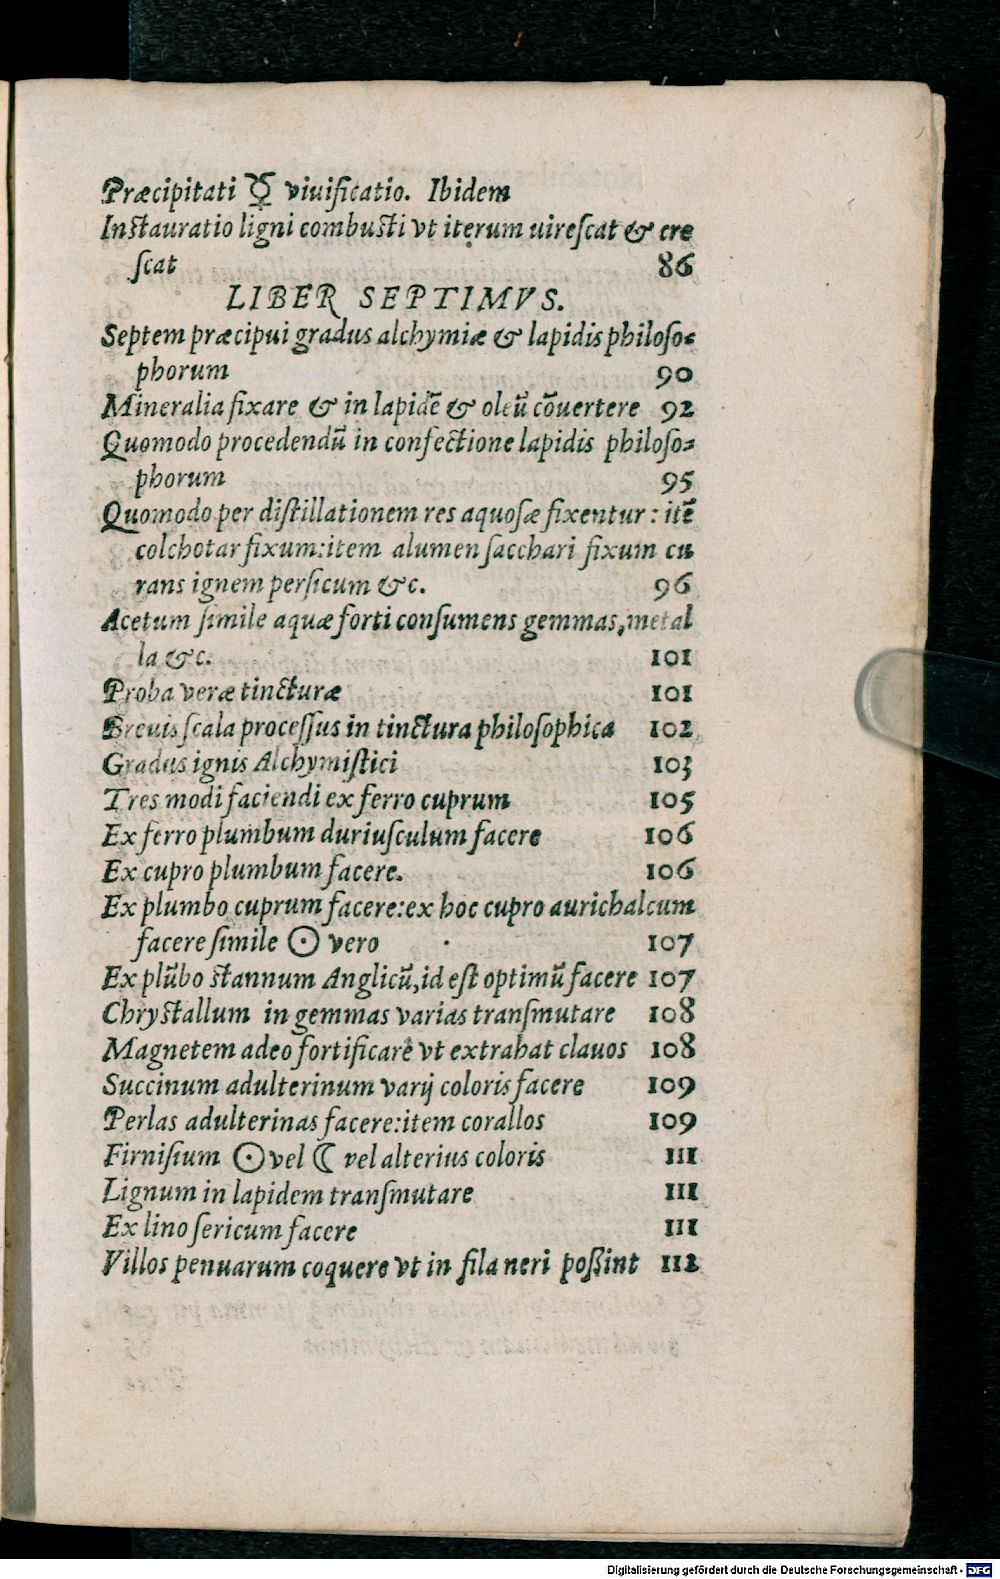 Præcipitati ☿ viuificatio. Ibidem
Instauratio ligni combusti vt iterum uirescat & cre
scat 86
LIBER SEPTIMVS.
Septem præcipui gradus alchymiæ & lapidis philoso-
phorum 90
Mineralia fixare & in lapidē & oleū cōuertere 92
Quomodo procedendū in confectione lapidis philoso-
phorum 95
Quomodo per distillationem res aquosæ fixentur: itē
colchotar fixum: item alumen sacchari fixum cu
rans ignem persicum &c. 96
Acetum simile aquæ forti consumens gemmas, metal
la &c. 101
Proba veræ tincturæ 101
Breuis scala processus in tinctura philosophica 102
Gradus ignis Alchymistici 103
Tres modi faciendi ex ferro cuprum 105
Ex ferro plumbum duriusculum facere 106
Ex cupro plumbum facere. 106
Ex plumbo cuprum facere: ex hoc cupro aurichalcum
facere simile ☉ vero 107
Ex plūbo stannum Anglicū, id est optimū facere 107
Chrystallum in gemmas varias transmutare 108
Magnetem adeo fortificare vt extrahat clauos 108
Succinum adulterinum varij coloris facere 109
Perlas adulterinas facere: item corallos 109
Firnisium ☉ vel ☾ vel alterius coloris 111
Lignum in lapidem transmutare 111
Ex lino sericum facere 111
Villos penuarum coquere vt in fila neri poßint 112
Digitalisierung gefördert durch die Deutsche Forschungsgemeinschaft - DFG